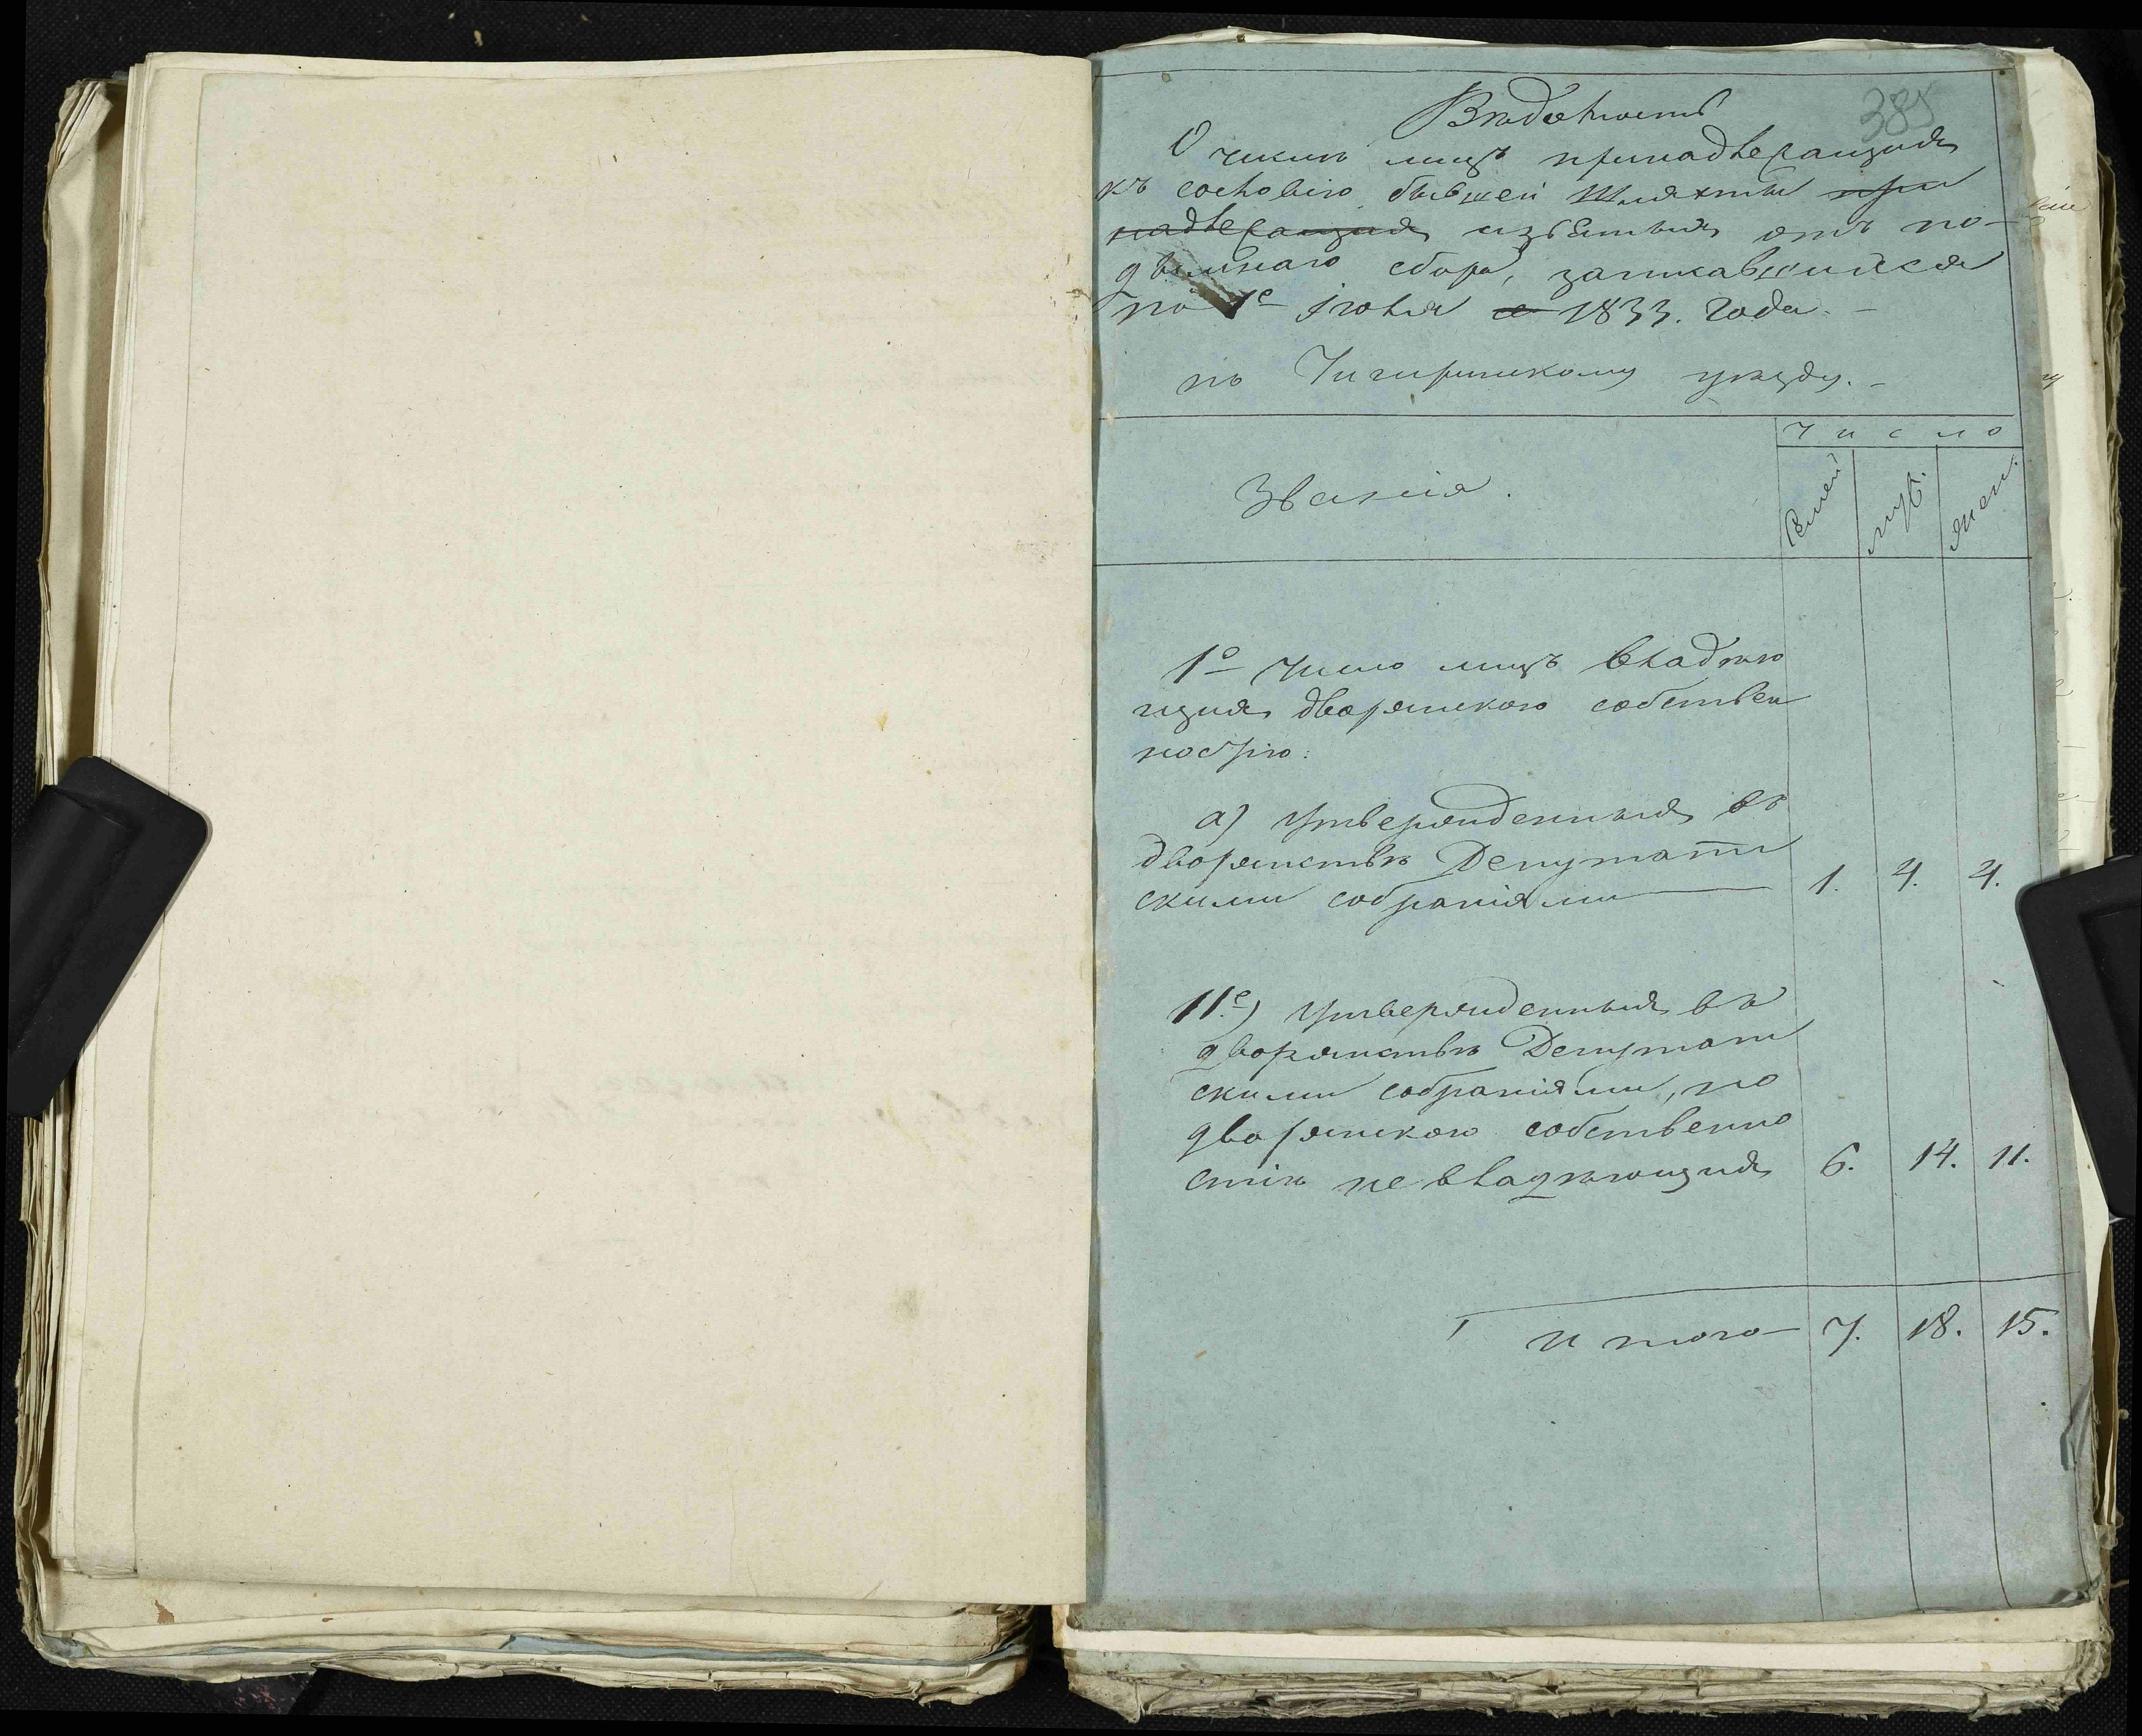 385
Вѣдомость
О числѣ лицъ принадлежащихъ
къ сословію бывшей Шляхты при
надлежащихъ изъятыхъ отъ по-
дымнаго сбора, записавшихся
по 1е Іюля 1833. года. -
по Чигиринскому уезду. -
Званія.
число
Семей
муж.
жен.
1о Число лицъ владѣю
щихъ дворянскою собствен
ностію:
а) утвержденныхъ въ
дворянствѣ Депутат
скими собраніями 1. 4. 4.
11е) утвержденныхъ въ
дворянствѣ Депутат
скими собраніями, но
дворянскою собственно
стію не владѣющихъ 6. 14. 11.
Итого 7. 18. 15.